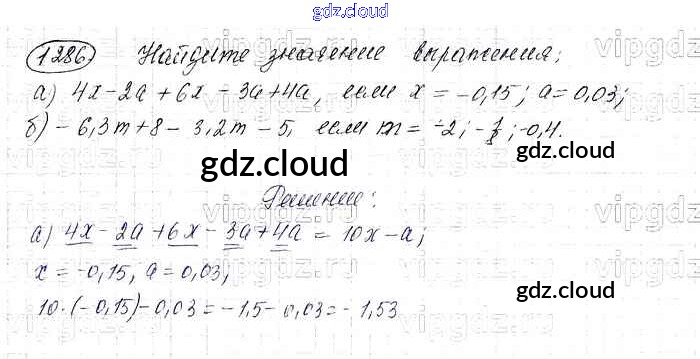 gdz.cloud
1286. Найдите значение выражения:
а) 4x-2a+6x-3a+4a, если x=-0,15; a=0,03;
б) -6,3m+8-3,2m-5, если m=-2; ; -0,4.
gdz.cloud
Решение:
а) 4x-2a+6x-3a+4a=10x-a;
x=-0,15, a=0,03,
10·(-0,15)-0,03=-1,5-0,03=-1,53
gdz.cloud
vipgdz